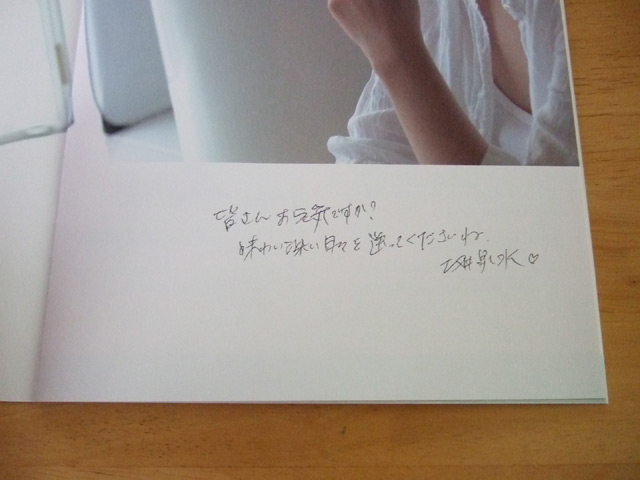 皆さんお元気ですか?
味わい深い日々を送ってくださいね.
坂井泉水♡